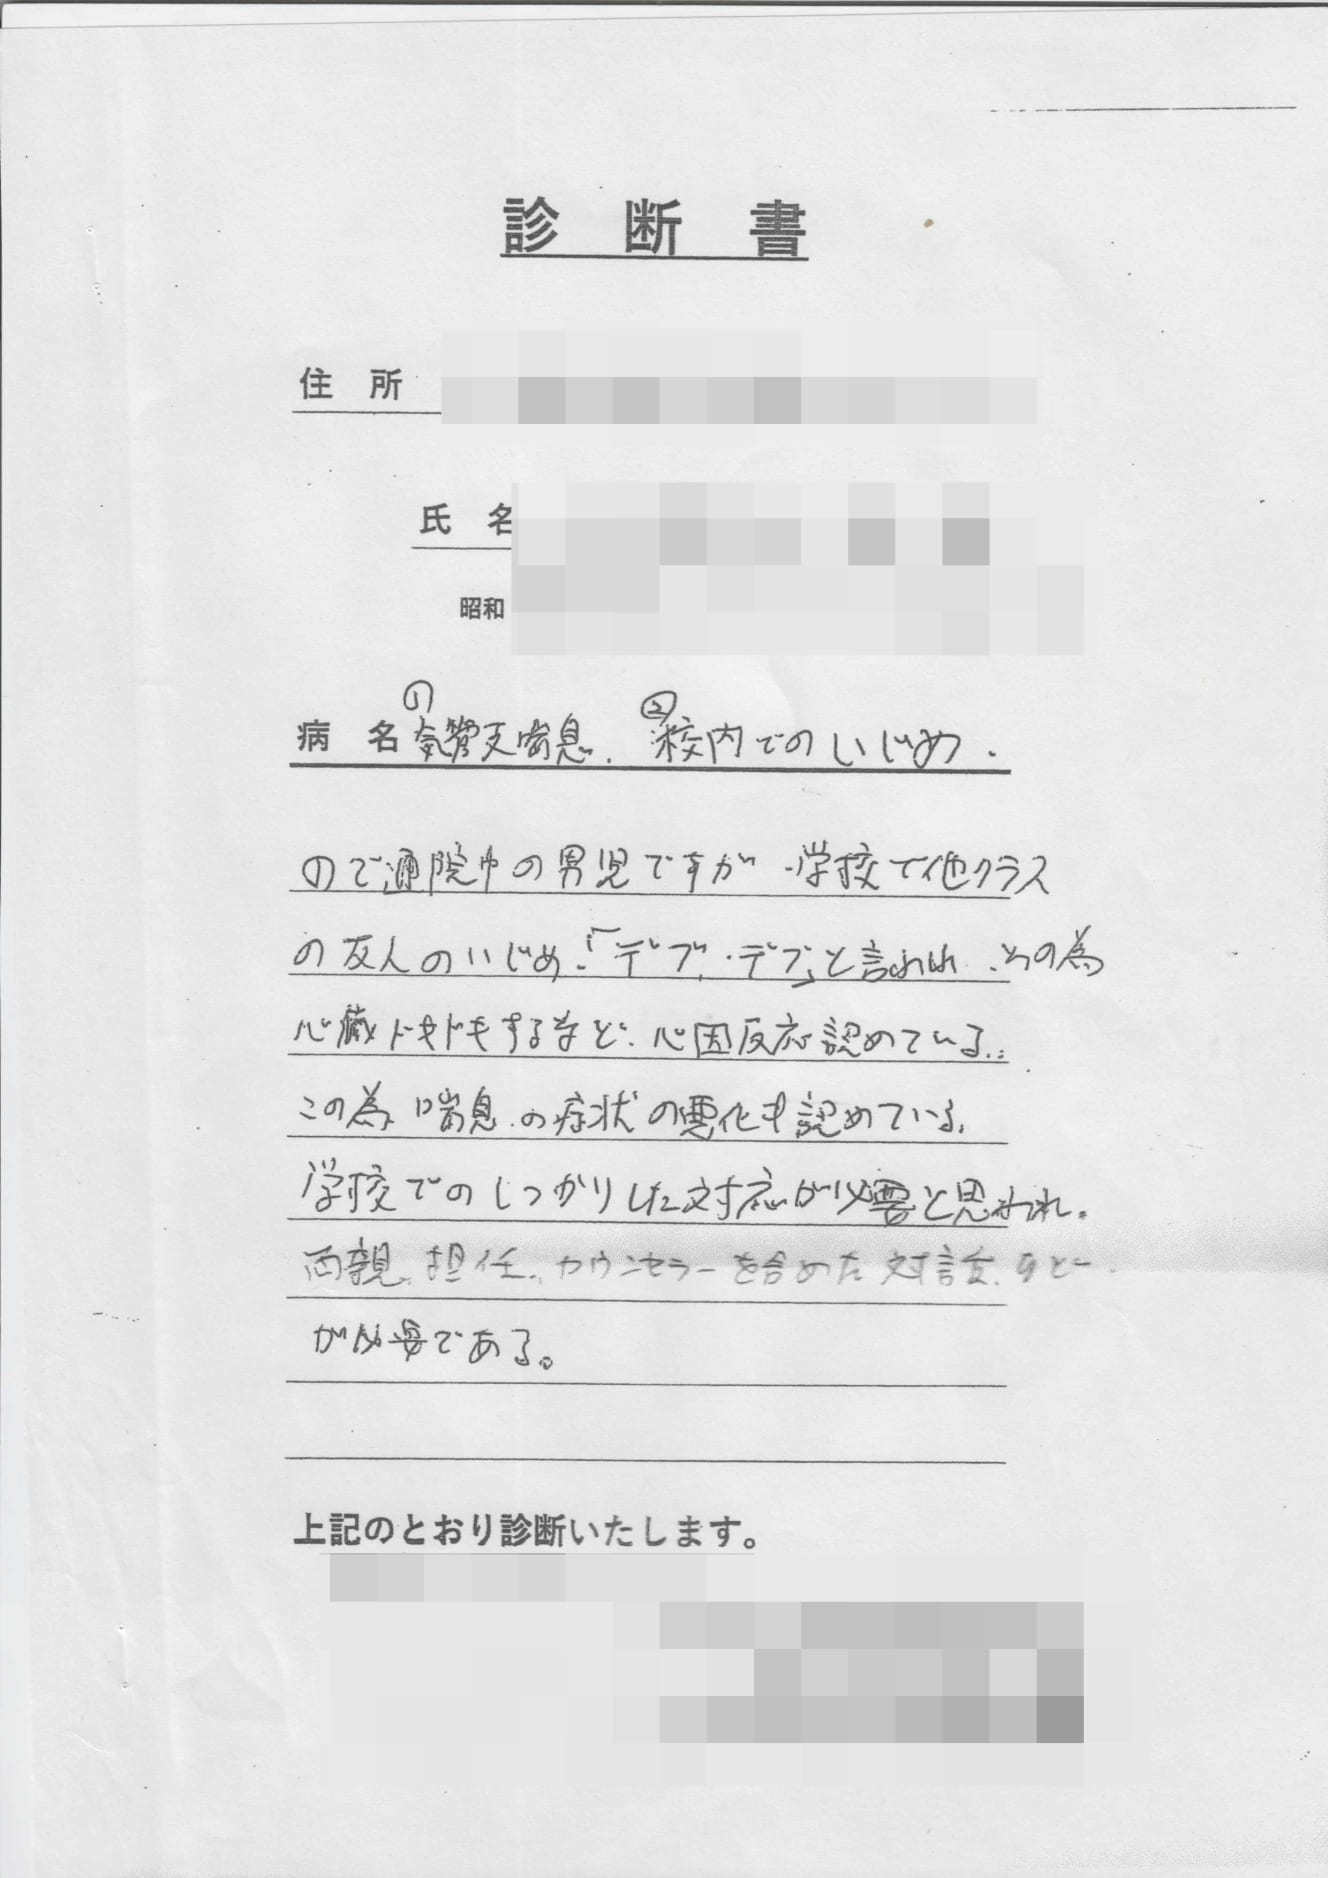 診断書
住所
氏名
昭和
病名 ①気管支喘息. ②校内でのいじめ.
①で通院中の男児ですが、学校で他クラス
の友人のいじめ.「デブ、デブ」と言われ、その為
心臓ドキドキするなど、心因反応認めている.
この為、喘息の症状の悪化も認めている.
学校でのしっかりした対応が必要と思われ.
両親、担任、カウンセラーを含めた対話など
が必要である。
上記のとおり診断いたします。